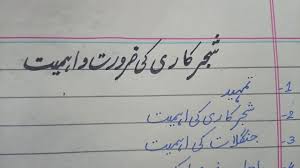 شجر کاری کی ضرورت و اہمیت
1- تمہید
2- شجر کاری کی اہمیت
3- جنگلات کی اہمیت